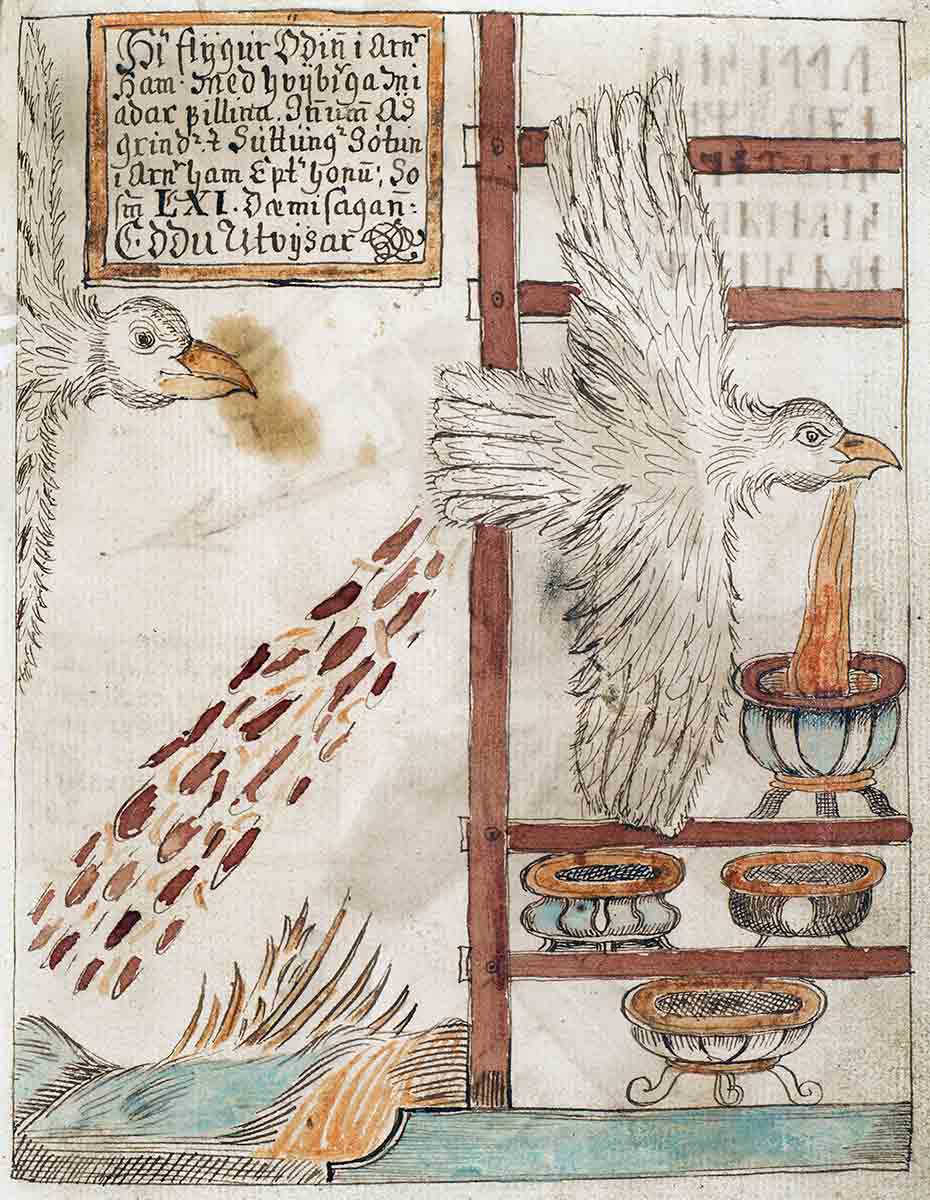 Hr̃ flÿgur Odiñ i Arnr
Ham. med Kvÿbrga Mi
adar fillina, Jñum̃ Ás
grindr ⁊ Suttungr Jötun
i Arnr ham Eptr honũ, So
sm̃ LXI. Dæmisagan:
Eddu Utvÿsar